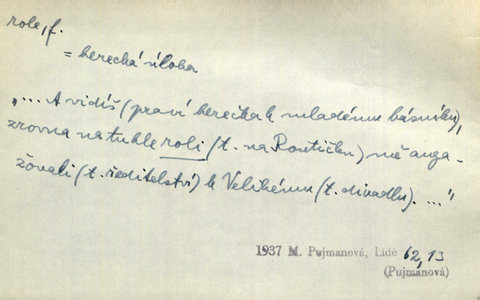 role, f.
= herecká úloha
„... A vidíš (praví herečka k mladému básníku),
zrovna na tuhle roli (t. na Routičku) mě anga-
žovali (t. ředitelství) k Velikému (t. divadlu). ..."
1937 M. Pujmanová, Lidé 62, 13
(Pujmanová)